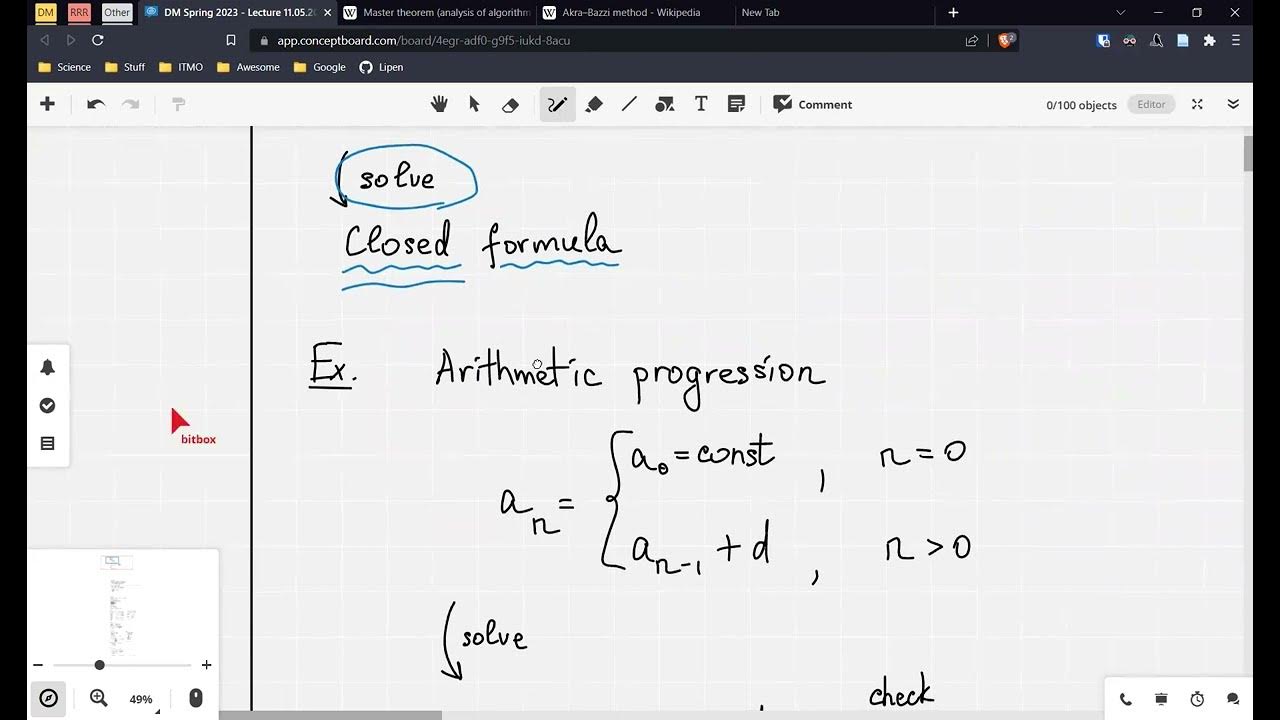 DM RRR Other DM Spring 2023 - Lecture 11.05.2 Master theorem (analysis of algorithm Akra–Bazzi method - Wikipedia New Tab
app.conceptboard.com/board/4egr-adf0-g9f5-iukd-8acu 2
Science Stuff ITMO Awesome Google Lipen
T Comment 0/100 objects Editor
solve
Closed formula
Ex. Arithmetic progression
bitbox
a₀ = const , n = 0
aₙ =
aₙ₋₁ + d , n > 0
solve
49%
check